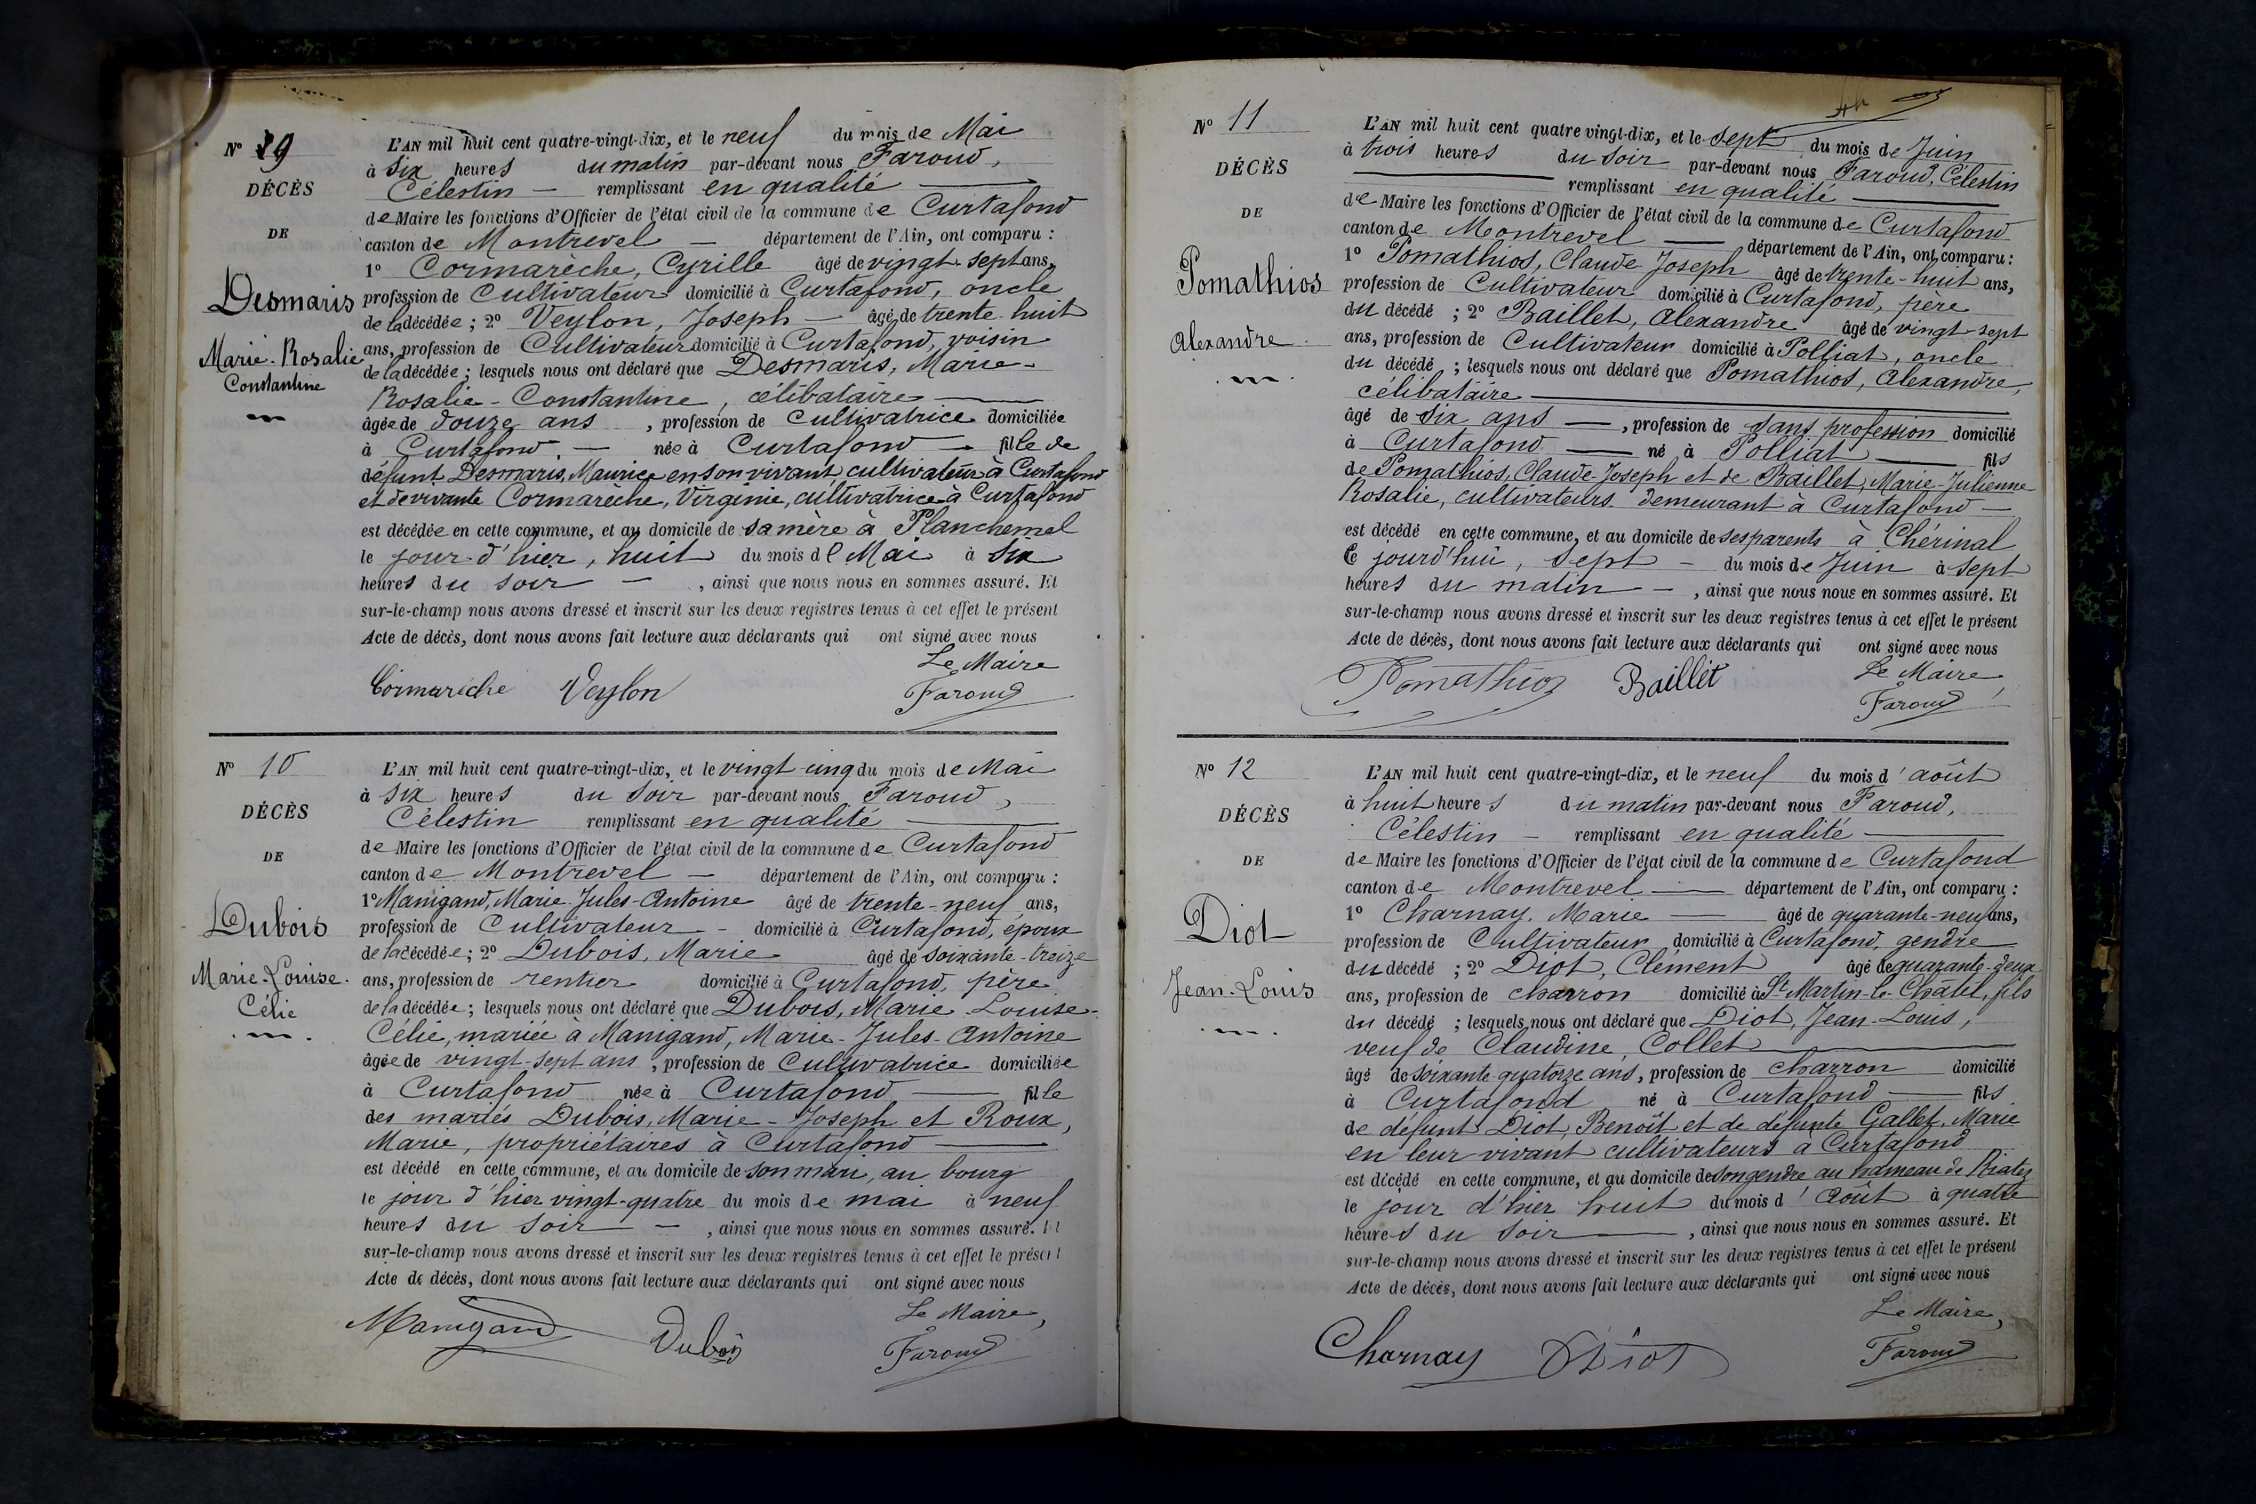 N° 9
DÉCÈS
DE
Desmaris
Marie-Rosalie
Constantine
L'AN mil huit cent quatre-vingt-dix, et le neuf du mois de Mai
à six heures du matin par-devant nous Faroud,
Célestin — remplissant en qualité —
de Maire les fonctions d'Officier de l'état civil de la commune de Curtafond
canton de Montrevel — département de l'Ain, ont comparu :
1° Cormarèche, Cyrille âgé de vingt-sept ans,
profession de Cultivateur domicilié à Curtafond, oncle
de la décédée ; 2° Veylon, Joseph — âgé de trente-huit
ans, profession de Cultivateur domicilié à Curtafond, voisin
de la décédée ; lesquels nous ont déclaré que Desmaris, Marie-
Rosalie-Constantine, célibataire —
âgée de douze ans , profession de Cultivatrice domiciliée
à Curtafond. — née à Curtafond — fille de
défunt Desmaris, Maurice en son vivant cultivateur à Curtafond
et de vivante Cormarèche, Virginie, cultivatrice à Curtafond
est décédée en cette commune, et au domicile de sa mère à Planchemel
le jour d'hier, huit du mois de Mai à six
heures du soir — , ainsi que nous nous en sommes assuré. Et
sur-le-champ nous avons dressé et inscrit sur les deux registres tenus à cet effet le présent
Acte de décès, dont nous avons fait lecture aux déclarants qui ont signé avec nous
Le Maire
Cormarèche Veylon Faroud
N° 10
DÉCÈS
DE
Dubois
Marie-Louise-
Célie
L'AN mil huit cent quatre-vingt-dix, et le vingt-cinq du mois de Mai
à six heures du soir par-devant nous Faroud,
Célestin remplissant en qualité —
de Maire les fonctions d'Officier de l'état civil de la commune de Curtafond
canton de Montrevel — département de l'Ain, ont comparu :
1° Manigand, Marie-Jules-Antoine âgé de trente-neuf ans,
profession de Cultivateur - domicilié à Curtafond, époux
de la décédée ; 2° Dubois, Marie âgé de soixante-treize
ans, profession de rentier domicilié à Curtafond, père
de la décédée ; lesquels nous ont déclaré que Dubois, Marie-Louise-
Célie, mariée à Manigand, Marie-Jules-Antoine
âgée de vingt-sept ans , profession de Cultivatrice domiciliée
à Curtafond née à Curtafond — fille
des mariés Dubois, Marie-Joseph et Roux,
Marie, propriétaires à Curtafond —
est décédé en cette commune, et au domicile de son mari, au bourg
le jour d'hier vingt-quatre du mois de mai à neuf
heures du soir — , ainsi que nous nous en sommes assuré. Et
sur-le-champ nous avons dressé et inscrit sur les deux registres tenus à cet effet le présent
Acte de décès, dont nous avons fait lecture aux déclarants qui ont signé avec nous
Le Maire,
Manigand Dubois Faroud
N° 11
DÉCÈS
DE
Pomathios
Alexandre
L'AN mil huit cent quatre vingt-dix, et le sept du mois de Juin
à trois heures du soir par-devant nous Faroud, Célestin
— remplissant en qualité —
de Maire les fonctions d'Officier de l'état civil de la commune de Curtafond
canton de Montrevel — département de l'Ain, ont comparu :
1° Pomathios, Claude-Joseph âgé de trente-huit ans,
profession de Cultivateur domicilié à Curtafond, père
du décédé ; 2° Baillet, Alexandre âgé de vingt-sept
ans, profession de Cultivateur domicilié à Polliat, oncle
du décédé ; lesquels nous ont déclaré que Pomathios, Alexandre,
célibataire —
âgé de six ans — , profession de sans profession domicilié
à Curtafond — né à Polliat — fils
de Pomathios, Claude-Joseph et de Baillet, Marie-Julienne
Rosalie, cultivateurs demeurant à Curtafond —
est décédé en cette commune, et au domicile de ses parents à Chérinal
ce jourd'hui, sept — du mois de Juin à sept
heures du matin — , ainsi que nous nous en sommes assuré. Et
sur-le-champ nous avons dressé et inscrit sur les deux registres tenus à cet effet le présent
Acte de décès, dont nous avons fait lecture aux déclarants qui ont signé avec nous
Le Maire,
Pomathios Baillet Faroud
N° 12
DÉCÈS
DE
Diot
Jean-Louis
L'AN mil huit cent quatre-vingt-dix, et le neuf du mois d'août
à huit heures du matin par-devant nous Faroud,
Célestin — remplissant en qualité —
de Maire les fonctions d'Officier de l'état civil de la commune de Curtafond
canton de Montrevel — département de l'Ain, ont comparu :
1° Charnay, Marie — âgé de quarante-neuf ans,
profession de Cultivateur domicilié à Curtafond, gendre
du décédé ; 2° Diot, Clément âgé de quarante-deux
ans, profession de charron domicilié à St Martin-le-Châtel, fils
du décédé ; lesquels nous ont déclaré que Diot, Jean-Louis,
veuf de Claudine Collet —
âgé de soixante-quatorze ans, profession de charron domicilié
à Curtafond né à Curtafond — fils
de défunt Diot, Benoît et de défunte Gallet, Marie
en leur vivant cultivateurs à Curtafond
est décédé en cette commune, et au domicile de son gendre au hameau de Riatez
le jour d'hier huit du mois d'Août à quatre
heures du soir — , ainsi que nous nous en sommes assuré. Et
sur-le-champ nous avons dressé et inscrit sur les deux registres tenus à cet effet le présent
Acte de décès, dont nous avons fait lecture aux déclarants qui ont signé avec nous
Le Maire,
Charnay Diot Faroud